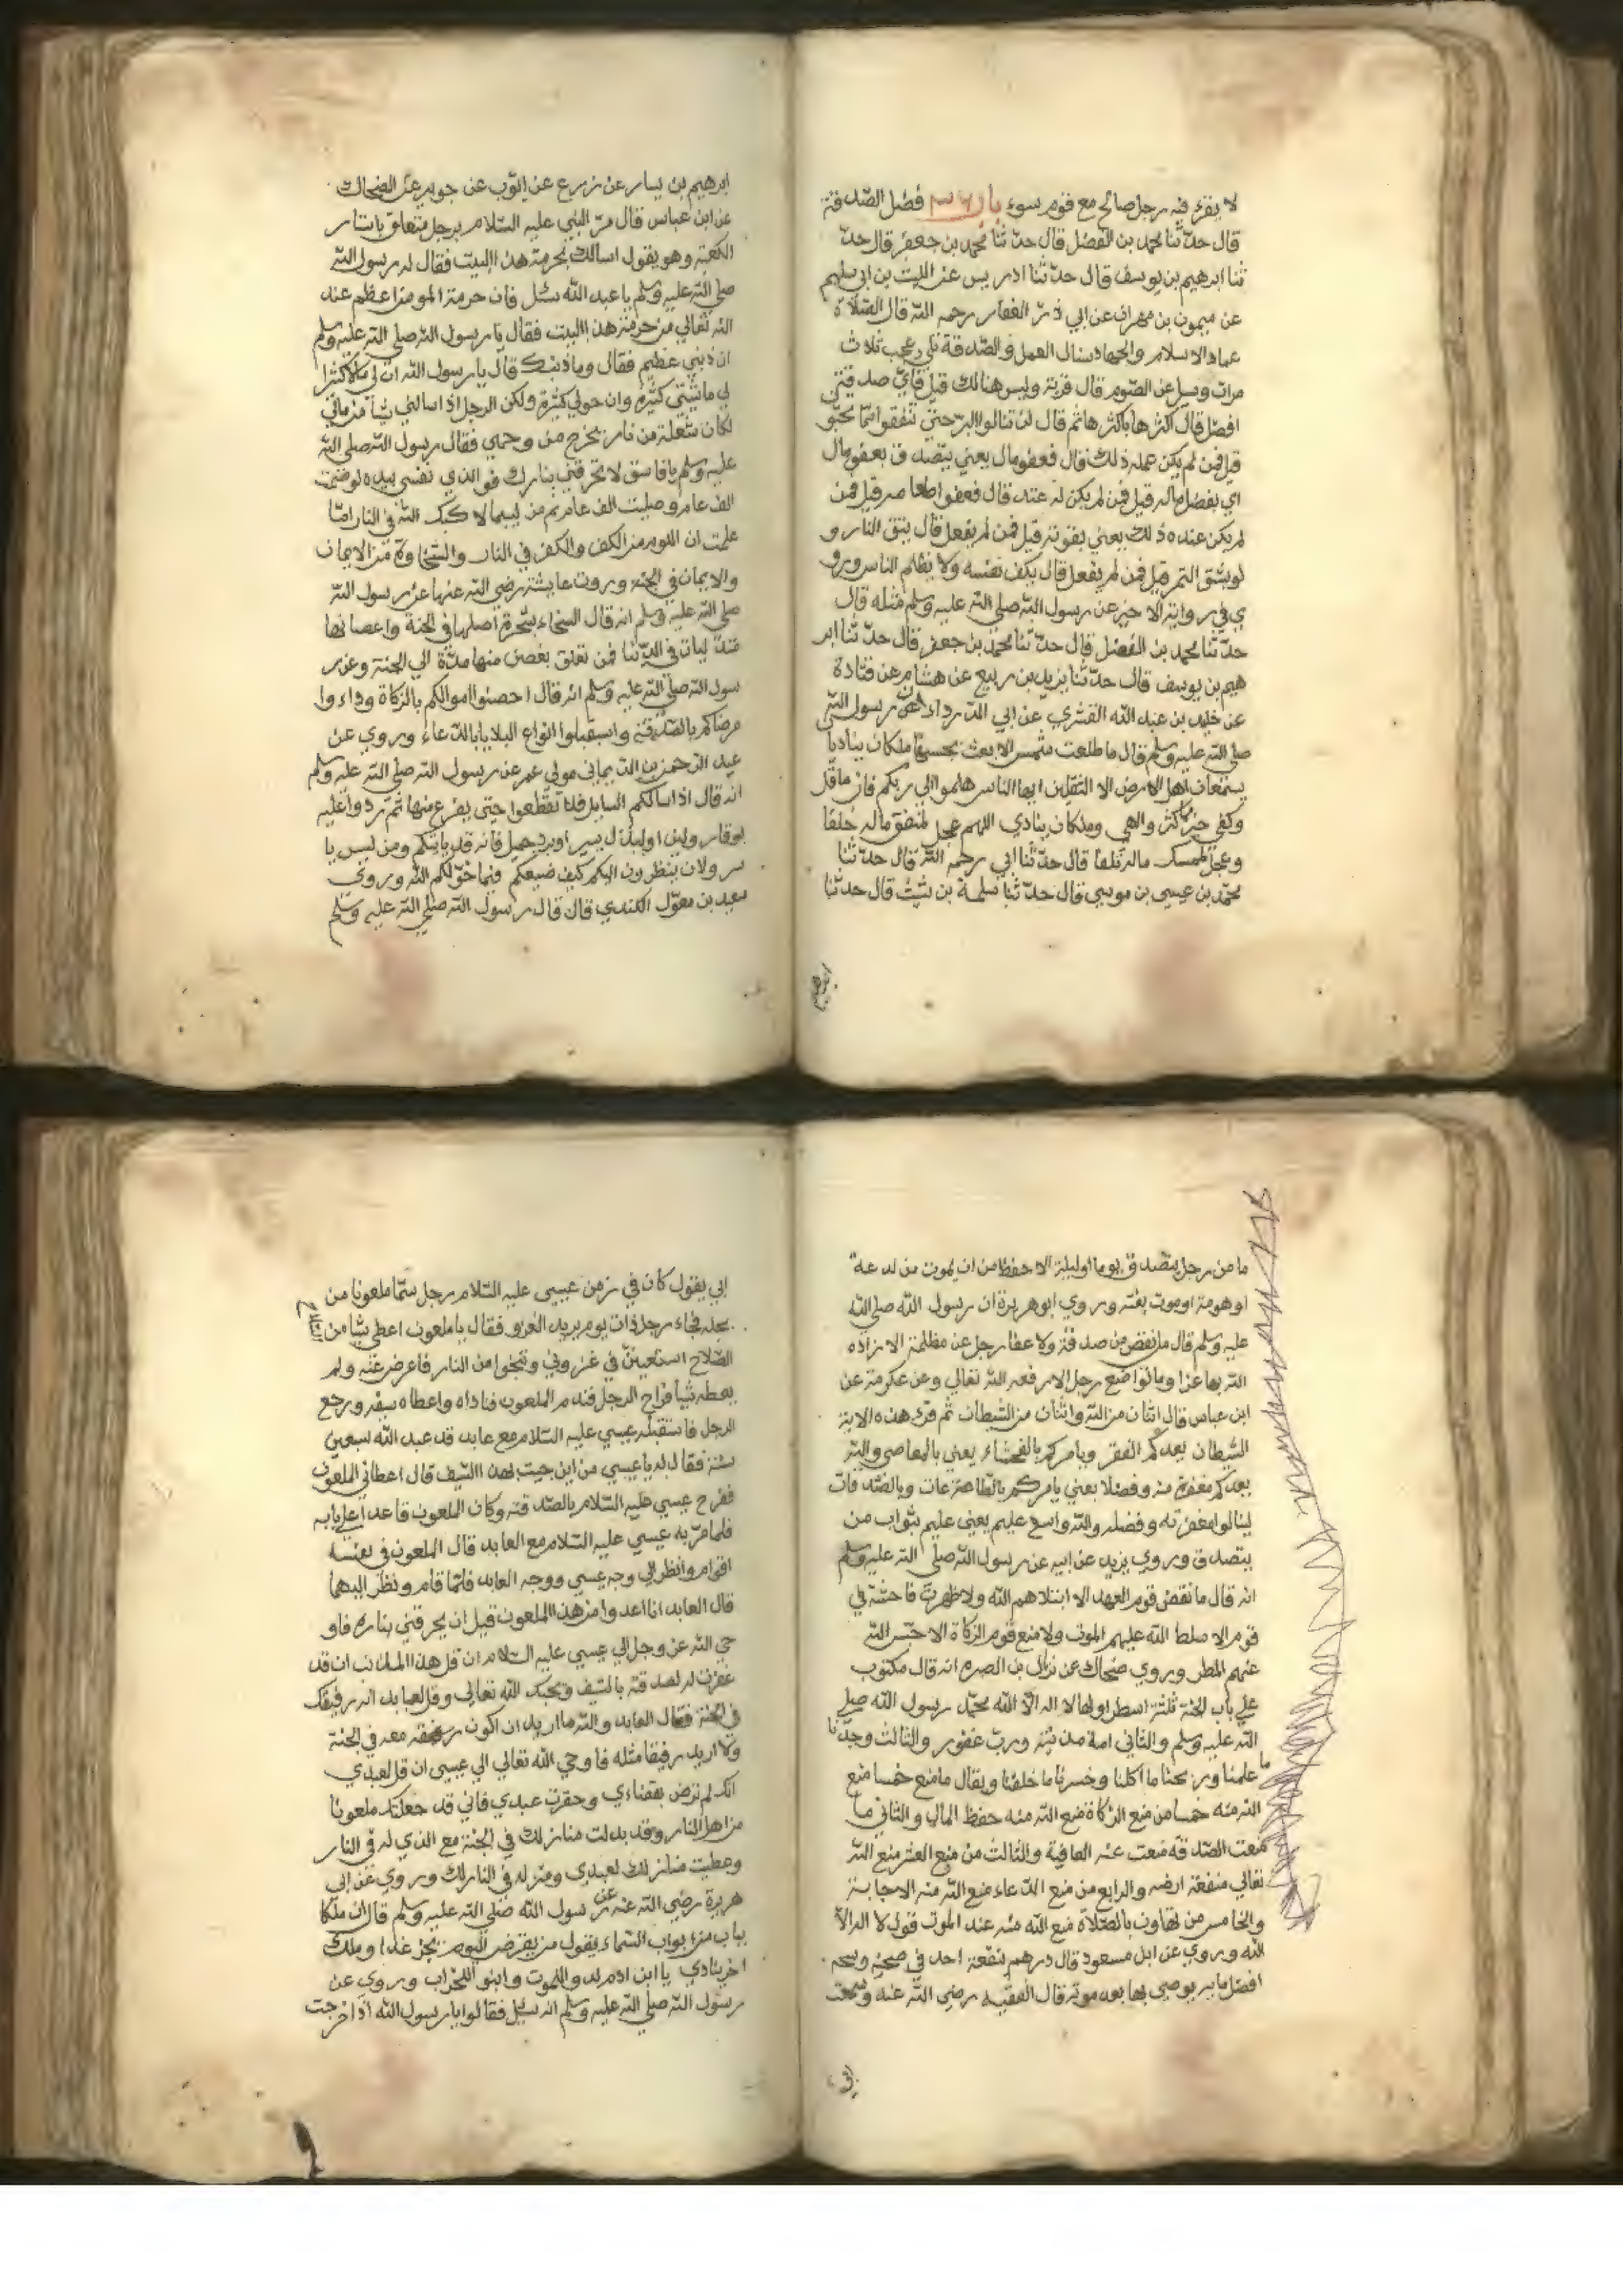 لا يقرء فيه رجل صالح مع قوم سوء باب فضل الصدقة
قال حدّثنا محمد بن الفضل قال حدثنا محمد بن جعفر قال حدّ
ثنا ابرهيم بن يوسف قال حدّثنا ادريس عن الليث بن ابي سليم
عن ميمون بن مهران عن ابي ذرّ الغفاري رحمه الله قال الصلاة
عماد الاسلام والجهاد سنال العمل والصدقة شي عجب ثلاث
مرات وسيل عن الصوم قال قربة وليس هنالك قيل فايّ صدقتي
افضل قال اكثرها باكثرها ثم قال لن تنالوا البرّ حتّي تنفقوا ممّا تحبّو
قيل فمن لم يكن عمله ذلك قال فعفو مال يعني يتصدق بعفو مال
اي بفضل ماله قيل فمن لم يكن له عنده قال فعفوا طعامه قيل فمن
لم يكن عنده ذلك يعني بقوته قيل فمن لم يفعل قال يتق النار و
لو بشق التمر قيل فمن لم يفعل قال يكف نفسه ولا يظلم الناس ورو
ي في رواية الاخير عن رسول الله صلي الله عليه وسلم مثله قال
حدّثنا محمد بن الفضل قال حدّثنا محمد بن جعفر قال حدّثنا ابر
هيم بن يوسف قال حدّثنا يزيد بن ربيع عن هشام عن قتادة
عن خليد بن عبد الله القشري عن ابي الدرداء عن رسول الله
صلي الله عليه وسلم قال ما طلعت شمس الا بعث بجنبيها ملكان يناديا
يسمعان اهل الارض الا الثقلين ايها الناس هلموا الي ربكم فان ما قلّ
وكفي خير ما كثر والهي وملكان ينادي اللهم عجل لمنفق ماله خلفا
وعجل لممسك ماله تلفا قال حدّثنا ابي رحمه الله قال حدثنا
محمّد بن عيسي بن موسي قال حدّثنا سلمة بن شيث قال حدثنا
ابرهيم
ابرهيم بن يسار عن زرع عن ايّوب عن جويبر عن الضحاك
عن ابن عباس قال مرّ النبي عليه السّلام برجل متعلق باستار
الكعبة وهو يقول اسالك بحرمة هذا البيت فقال له رسول الله
صلي الله عليه وسلم يا عبد الله سئل فان حرمة المومن اعظم عند
الله تعالي من حرمة هذا البيت فقال يا رسول الله صلي الله عليه وسلم
ان ذنبي عظيم فقال وما ذنبك قال يا رسول الله ان لي مالا كثيرا
لي ماشيتي كثيرة وان خولي كثيرة ولكن الرجل اذا سالني شيأ من مالي
لكان شعلة من نار يخرج من وجهي فقال رسول الله صلي الله
عليه وسلم يا فاسق لا تحرقني بنارك فو الذي نفسي بيده لو صمت
الف عام وصليت الف عام ثم مت لييما لا كبك الله في النار امّا
علمت ان اللوم من الكفر والكفر في النار والسّخاوة من الايمان
والايمان في الجنة وروت عايشة رضي الله عنها عن رسول الله
صلي الله عليه وسلم انه قال السّخاء شجرة اصلها في الجنة واغصانها
متدليات في الدنيا فمن تعلق بغصن منها مدّة الي الجنة وعن ر
سول الله صلي الله عليه وسلم انه قال احصنوا اموالكم بالزكاة وداووا
مرضاكم بالصّدقة واستقبلوا انواع البلايا بالدعاء وروي عن
عبد الرّحمن بن اليماني مولي عمر عن رسول الله صلي الله عليه وسلم
انه قال اذا سالكم السايل فلا تقطعوا حتي يفرغ منها ثمّ ردّوا عليه
بوقار ولين او ببذل يسير او برد جميل فانه قد ياتيكم ومن ليس با
نس ولا جان ينظرون اليكم كيف صنيعكم فيما خوّلكم الله وروي
سعيد بن معوّل الكندي قال قال رسول الله صلي الله عليه وسلم
ما من رجل يتصدق يوما او ليلة الا حفظ من ان يموت من لدعة
او هومة او موت بغتة وروي ابو هريرة ان رسول الله صلي الله
عليه وسلم قال ما نقص من صدقة ولا عفا رجل عن مظلمة الا زاده
الله بها عزا وما تواضع رجل الا رفعه الله تعالي وعن عكرمة عن
ابن عباس قال اثنان من الله واثنان من الشيطان ثم قرء هذه الاية
الشيطان يعدكم الفقر ويامركم بالفحشاء يعني بالمعاصي والله
يعدكم مغفرة منه وفضلا يعني يامركم بالطاعات وبالصدقات
لينالوا مغفرته وفضله والله واسع عليم يعني عليم بثواب من
يتصدق وروي يزيد عن ابيه عن رسول الله صلي الله عليه وسلم
انه قال ما نقض قوم العهد الا ابتلاهم الله ولا ظهرت فاحشة في
قوم الا سلط الله عليهم الموت ولا منع قوم الزكاة الا حبس الله
عنهم المطر وروي ضحاك عن نزال بن الصبره انه قال مكتوب
علي باب الجنة ثلثة اسطر اولها لا اله الّا الله محمّد رسول الله صلي
الله عليه وسلم والثاني امة مدنبة وربّ غفور والثالث وجدنا
ما علمنا وربحنا ما اكلنا وخسرنا ما خلفنا ويقال ما منع خمسا منع
الله منه خمسا من منع الزكاة منع الله منه حفظ المال والثاني من
منعت الصّدقة منعت عنه العافية والثالث من منع العشر منع الله
تعالي منفعة ارضه والرابع من منع الدعاء منع الله منه الاجابة
والخامس من تهاون بالصّلاة منع الله منه عند الموت قول لا اله الّا
الله وروي عن ابن مسعود قال درهم ينفقه احد في صحته وشحه
افضل ماية يوصي بها بعد موته قال الفقيه رضي الله عنه وسمعت
ابي
ابي يقول كان في زمن عيسي عليه السّلام رجل سمّا ملعونا من
بخله فجاء رجل ذات يوم يريد الغزو فقال يا ملعون اعطي شيأ من
السّلاح استعين في غزوتي وتنجوا من النار فاعرض عنه ولم
يعطه شيأ فراح الرجل فندم الملعون فناداه واعطاه سيفه ورجع
الرجل فاستقبله عيسي عليه السّلام مع عابد قد عبد الله سبعين
سنة فقال له يا عيسي من اين جيت بهذا السّيف قال اعطاني الملعون
ففرح عيسي عليه السّلام بالصّدقة وكان الملعون قاعدا علي بابه
فلما مرّ به عيسي عليه السّلام مع العابد قال الملعون في نفسه
اقوم وانظر الي وجه عيسي ووجه العابد فلمّا قام ونظر اليهما
قال العابد انا اعدوا من هذا الملعون قبل ان يحرقني بناره فاو
حي الله عز وجل الي عيسي عليه السّلام ان قل هذا المذنب ان قد
غفرت له لصدقته بالسّيف وبحبك الله تعالي وقل لعابد انه رفيقك
في الجنة فقال العابد والله ما اريد ان اكون رفيقه معه في الجنة
ولا اريد رفيقا مثله فاوحي الله تعالي الي عيسي ان قل لعبدي
انك لم ترض بقضاءي وحقرت عبدي فاني قد جعلتك ملعونا
من اهل النار وقد بدلت منازلك في الجنة مع الذي له في النار
وعطيت منازلك لعبدي ومنزله في النار لك وروي عن ابي
هريرة رضي الله عنه عن رسول الله صلي الله عليه وسلم قال ان ملكا
بباب من ابواب السّماء يقول من يقرض اليوم يجز غدا وملك
اخر ينادي يا ابن ادم لدوا للموت وابنوا للخراب وروي عن
رسول الله صلي الله عليه وسلم انه سئل فقالوا يا رسول الله اذا خرجت